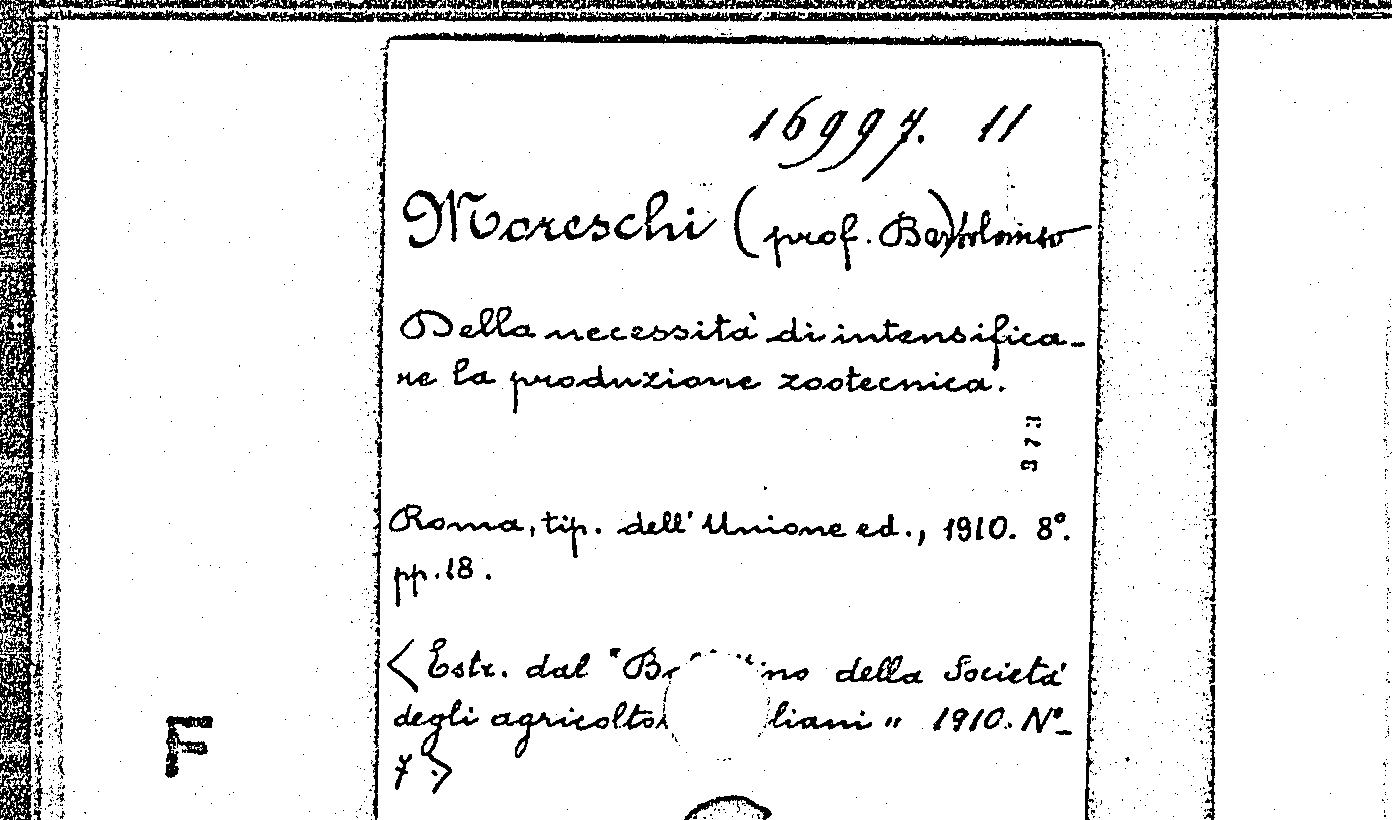 16997. 11
Moreschi (prof. Bartolomeo)
Della necessità di intensifica-
re la produzione zootecnica.
373
Roma, tip. dell'Unione ed., 1910. 8°.
pp. 18.
<Estr. dal "B no della Società
degli agricolto liani" 1910. N°-
7.>
F